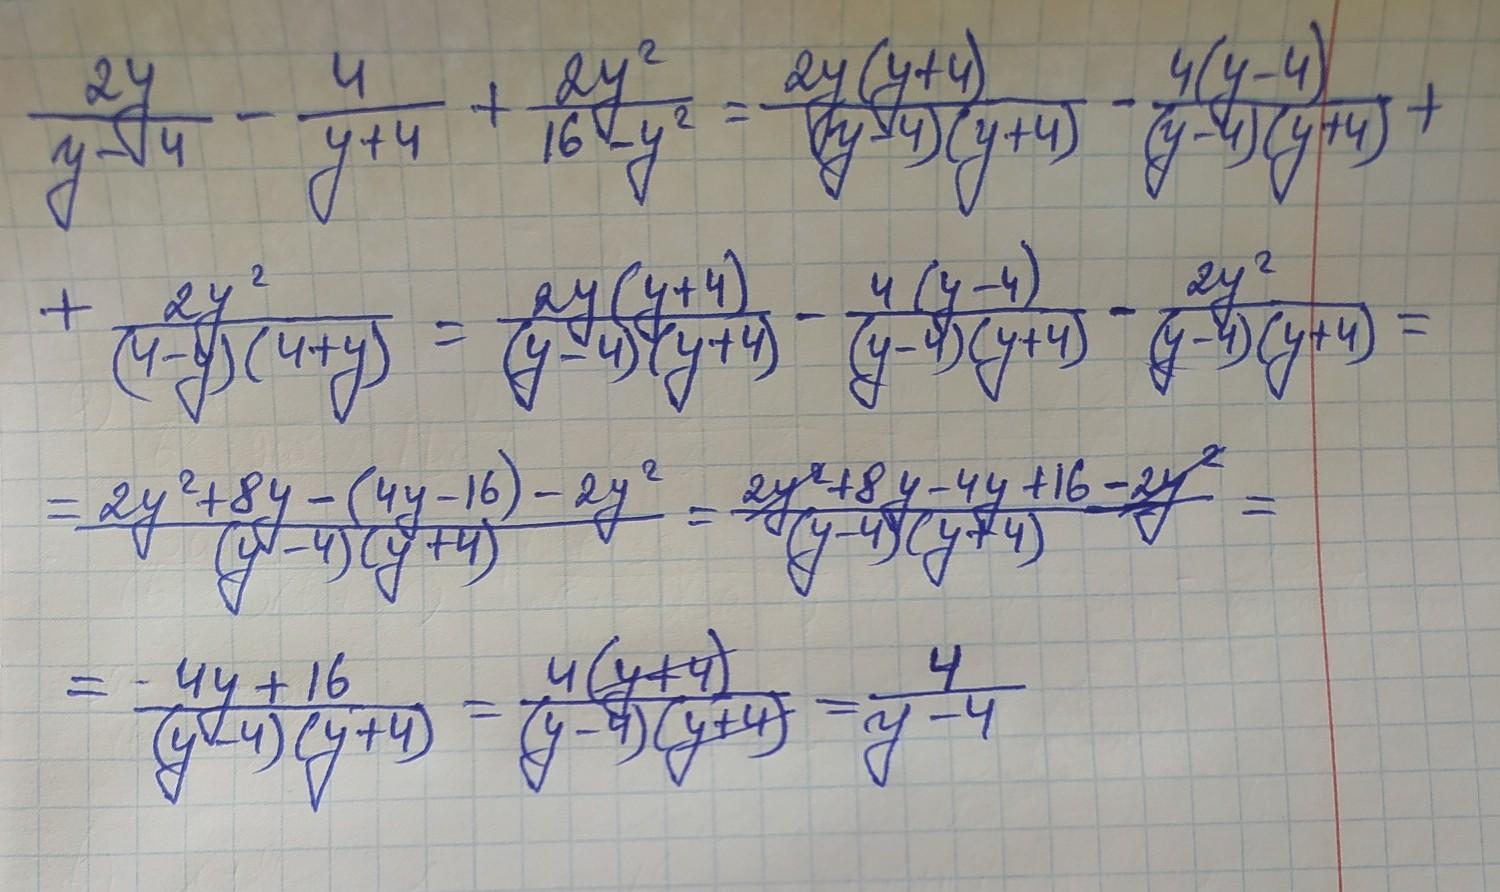 2y/(y-4) - 4/(y+4) + 2y²/(16-y²) = 2y(y+4)/((y-4)(y+4)) - 4(y-4)/((y-4)(y+4)) +
+ 2y²/((4-y)(4+y)) = 2y(y+4)/((y-4)(y+4)) - 4(y-4)/((y-4)(y+4)) - 2y²/((y-4)(y+4)) =
= (2y²+8y-(4y-16)-2y²)/((y-4)(y+4)) = (2y²+8y-4y+16-2y²)/((y-4)(y+4)) =
= (-4y+16)/((y-4)(y+4)) = 4(y+4)/((y-4)(y+4)) = 4/(y-4)